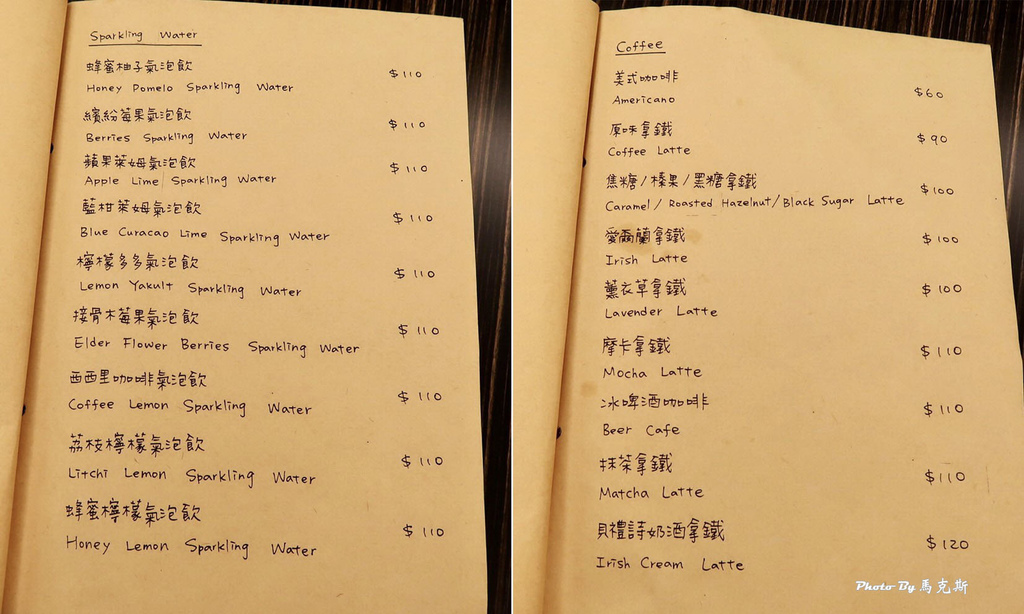 Sparkling Water
蜂蜜柚子氣泡飲 $110
Honey Pomelo Sparkling Water
繽紛莓果氣泡飲 $110
Berries Sparkling Water
蘋果萊姆氣泡飲 $110
Apple Lime Sparkling Water
藍柑萊姆氣泡飲 $110
Blue Curacao Lime Sparkling Water
檸檬多多氣泡飲 $110
Lemon Yakult Sparkling Water
接骨木莓果氣泡飲 $110
Elder Flower Berries Sparkling Water
西西里咖啡氣泡飲 $110
Coffee Lemon Sparkling Water
荔枝檸檬氣泡飲 $110
Litchi Lemon Sparkling Water
蜂蜜檸檬氣泡飲 $110
Honey Lemon Sparkling Water
Coffee
美式咖啡 $60
Americano
原味拿鐵 $90
Coffee Latte
焦糖/榛果/黑糖拿鐵 $100
Caramel/Roasted Hazelnut/Black Sugar Latte
愛爾蘭拿鐵 $100
Irish Latte
薰衣草拿鐵 $100
Lavender Latte
摩卡拿鐵 $110
Mocha Latte
冰啤酒咖啡 $110
Beer Cafe
抹茶拿鐵 $110
Matcha Latte
貝禮詩奶酒拿鐵 $120
Irish Cream Latte
Photo By 馬克斯